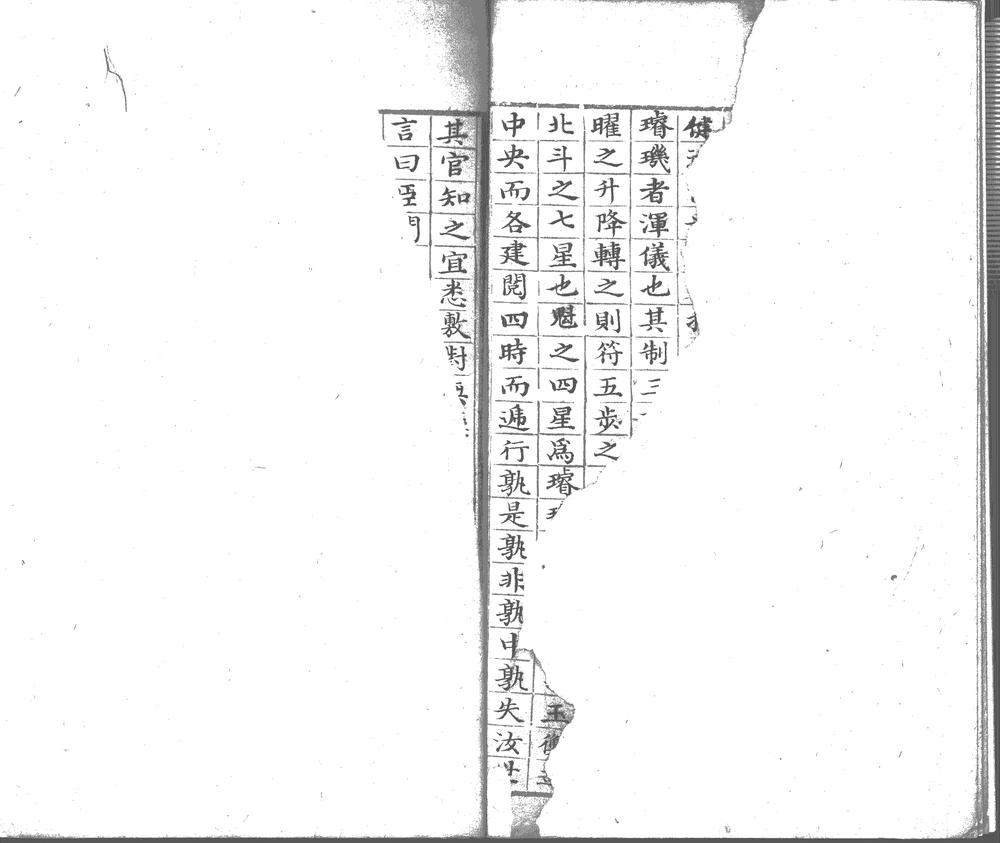 璿璣者渾儀也其制三
曜之升降轉之則符五步之
北斗之七星也魁之四星爲璿 玉衡
中央而各建閱四時而遞行孰是孰非孰中孰失汝
其官知之宜悉敷對
言曰臣